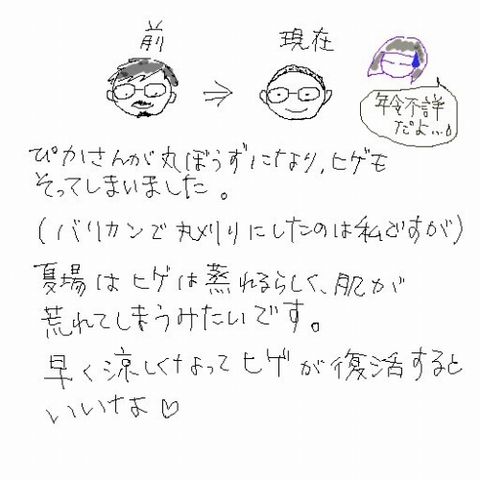 前
現在
年令不詳
だよ…
ぴかさんが丸ぼうずになり、ヒゲも
そってしまいました。
(バリカンで丸刈りにしたのは私ですが)
夏場はヒゲは蒸れるらしく、肌が
荒れてしまうみたいです。
早く涼しくなってヒゲが復活すると
いいけよ♡